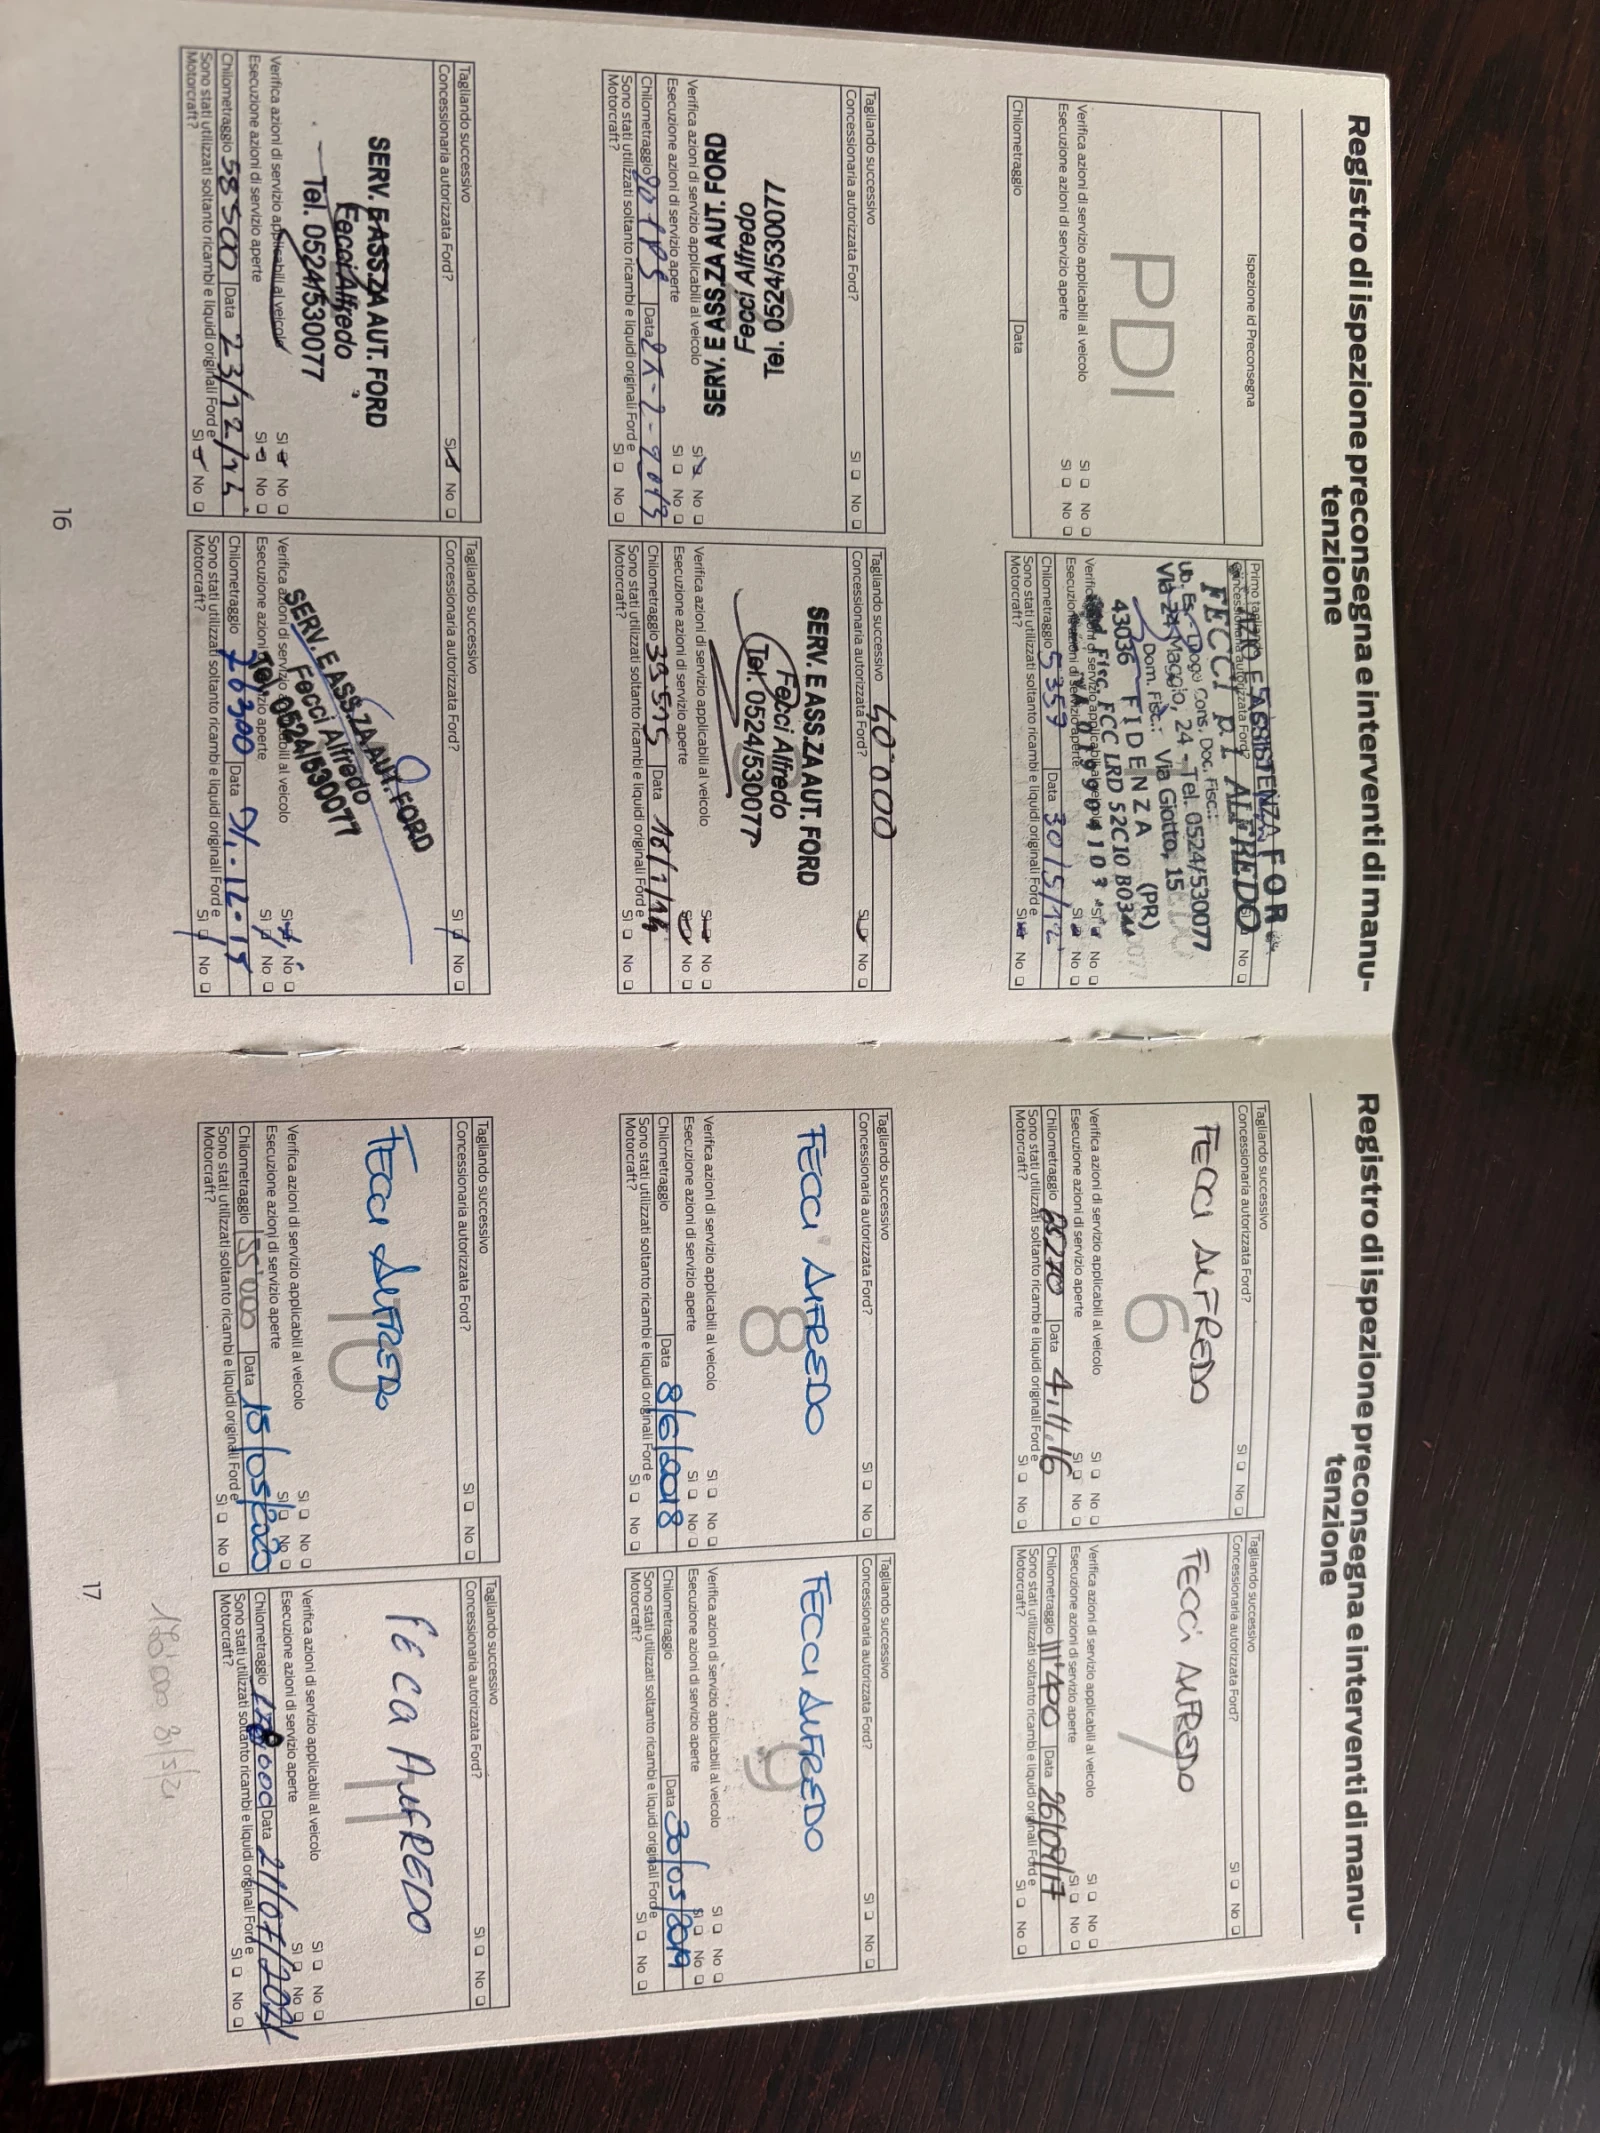 Registro di ispezione preconsegna e interventi di manu-
tenzione
Ispezione id Preconsegna
PDI
Verifica azioni di servizio applicabili al veicolo Sì No
Esecuzione azioni di servizio aperte Sì No
Chilometraggio Data
Primo
Concessionaria autorizzata Ford? No
E ASSISTENZA FOR
FECCI ALFREDO
Ub. Es. Cons. Doc. Fisc.:
Via 24 Maggio, 24 - Tel. 0524/530077
Dom. Fisc.: Via Giotto, 15
43036 FIDENZA (PR)
Fisc. FCC LRD 52C10 B034
Verifica azioni di servizio applicabili al veicolo Sì No
Esecuzione azioni di servizio aperte Sì No
Chilometraggio 5359 Data 30/5/12
Sono stati utilizzati soltanto ricambi e liquidi originali Ford e
Motorcraft? Sì No
Tagliando successivo
Concessionaria autorizzata Ford? Sì No
Tel. 0524/530077
Fecci Alfredo
SERV. E ASS.ZA AUT. FORD
Verifica azioni di servizio applicabili al veicolo Sì No
Esecuzione azioni di servizio aperte Sì No
Chilometraggio Data
Sono stati utilizzati soltanto ricambi e liquidi originali Ford e
Motorcraft? Sì No
Tagliando successivo 40'000
Concessionaria autorizzata Ford? Sì No
SERV. E ASS.ZA AUT. FORD
Fecci Alfredo
Tel. 0524/530077
Verifica azioni di servizio applicabili al veicolo Sì No
Esecuzione azioni di servizio aperte Sì No
Chilometraggio 39515 Data 18/1/14
Sono stati utilizzati soltanto ricambi e liquidi originali Ford e
Motorcraft? Sì No
Tagliando successivo
Concessionaria autorizzata Ford? Sì No
SERV. E ASS.ZA AUT. FORD
Fecci Alfredo
Tel. 0524/530077
Verifica azioni di servizio applicabili al veicolo Sì No
Esecuzione azioni di servizio aperte Sì No
Chilometraggio 58500 Data 23/12/14
Sono stati utilizzati soltanto ricambi e liquidi originali Ford e
Motorcraft? Sì No
Tagliando successivo
Concessionaria autorizzata Ford? Sì No
SERV. E ASS.ZA AUT. FORD
Fecci Alfredo
Tel. 0524/530077
Verifica azioni di servizio applicabili al veicolo Sì No
Esecuzione azioni di servizio aperte Sì No
Chilometraggio 70300 Data
Sono stati utilizzati soltanto ricambi e liquidi originali Ford e
Motorcraft? Sì No
16
Registro di ispezione preconsegna e interventi di manu-
tenzione
Tagliando successivo
Concessionaria autorizzata Ford? Sì No
FECCI ALFREDO
6
Verifica azioni di servizio applicabili al veicolo Sì No
Esecuzione azioni di servizio aperte Sì No
Chilometraggio Data 4.11.16
Sono stati utilizzati soltanto ricambi e liquidi originali Ford e
Motorcraft? Sì No
Tagliando successivo
Concessionaria autorizzata Ford? Sì No
FECCI ALFREDO
7
Verifica azioni di servizio applicabili al veicolo Sì No
Esecuzione azioni di servizio aperte Sì No
Chilometraggio 111'400 Data
Sono stati utilizzati soltanto ricambi e liquidi originali Ford e
Motorcraft? Sì No
Tagliando successivo
Concessionaria autorizzata Ford? Sì No
FECCI ALFREDO
8
Verifica azioni di servizio applicabili al veicolo Sì No
Esecuzione azioni di servizio aperte Sì No
Chilometraggio Data 8/6/2018
Sono stati utilizzati soltanto ricambi e liquidi originali Ford e
Motorcraft? Sì No
Tagliando successivo
Concessionaria autorizzata Ford? Sì No
FECCI ALFREDO
9
Verifica azioni di servizio applicabili al veicolo Sì No
Esecuzione azioni di servizio aperte Sì No
Chilometraggio Data 30/05/2019
Sono stati utilizzati soltanto ricambi e liquidi originali Ford e
Motorcraft? Sì No
Tagliando successivo
Concessionaria autorizzata Ford? Sì No
FECCI ALFREDO
10
Verifica azioni di servizio applicabili al veicolo Sì No
Esecuzione azioni di servizio aperte Sì No
Chilometraggio 155'000 Data 15/05/2020
Sono stati utilizzati soltanto ricambi e liquidi originali Ford e
Motorcraft? Sì No
Tagliando successivo
Concessionaria autorizzata Ford? Sì No
FECCI ALFREDO
11
Verifica azioni di servizio applicabili al veicolo Sì No
Esecuzione azioni di servizio aperte Sì No
Chilometraggio Data 21/07/2021
Sono stati utilizzati soltanto ricambi e liquidi originali Ford e
Motorcraft? Sì No
31/5/21
17